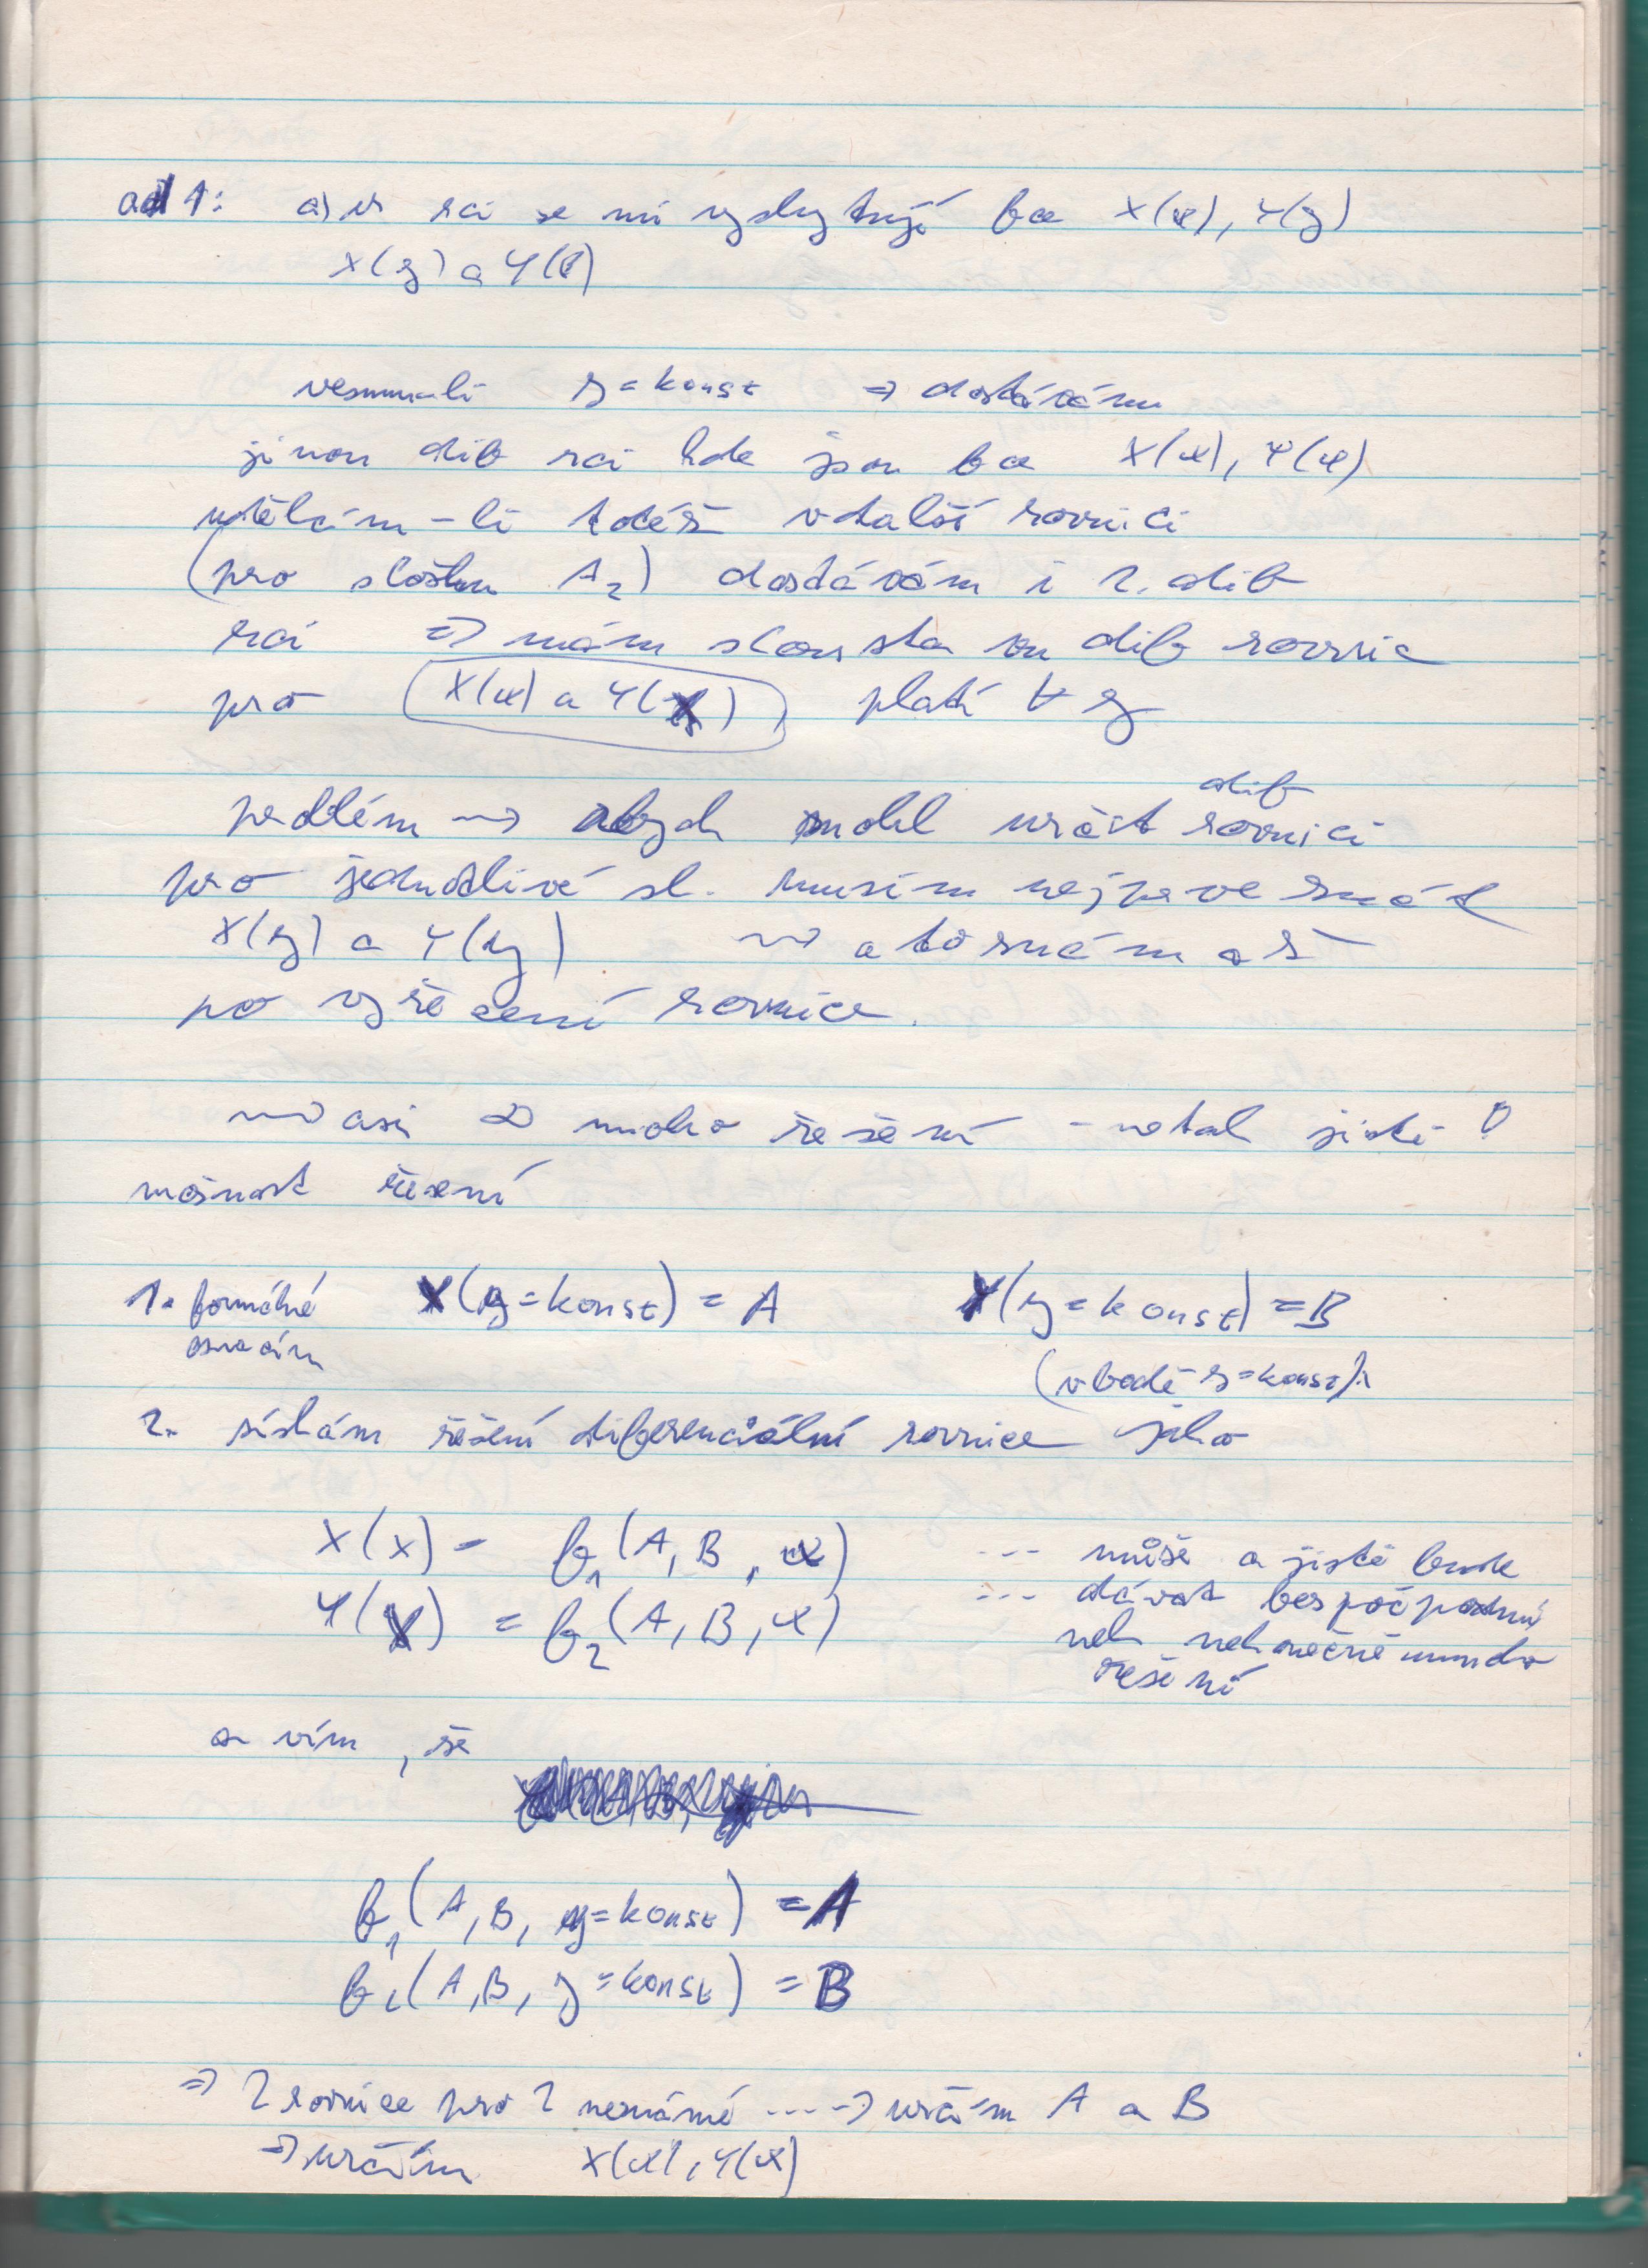 ad 1: a) v rci se mi vyskytují fce X(x), Y(y)
X(y) a Y(x)
vezmu-li y=konst ⇒ dostávám
jinou dif rci kde jsou fce X(x), Y(x)
udělám-li totéž v další rovnici
(pro složku A2) dostávám i 2. dif
rci ⇒ mám soustavu dif rovnic
pro X(x) a Y(x) platí ∀ y
problém → abych mohl určit dif rovnici
pro jednotlivé sl. musím nejprve znát
X(y) a Y(y) → a to znám až
po vyřešení rovnice.
→ asi ∞ mnoho řešení - ne tak jisté !
možnost řešení
1. formálně X(y=konst) = A Y(y=konst) = B
označím
(v bodě y=konst)
2. získám řešení diferenciální rovnice jako
X(x) = f1(A, B, x) ... může a jistě bude
Y(x) = f2(A, B, x) ... dávat
neb nekonečně mnoho
řešení
a vím, že
f1(A, B, y=konst) = A
f2(A, B, y=konst) = B
⇒ 2 rovnice pro 2 neznámé ....→ určím A a B
⇒ určím X(x), Y(x)